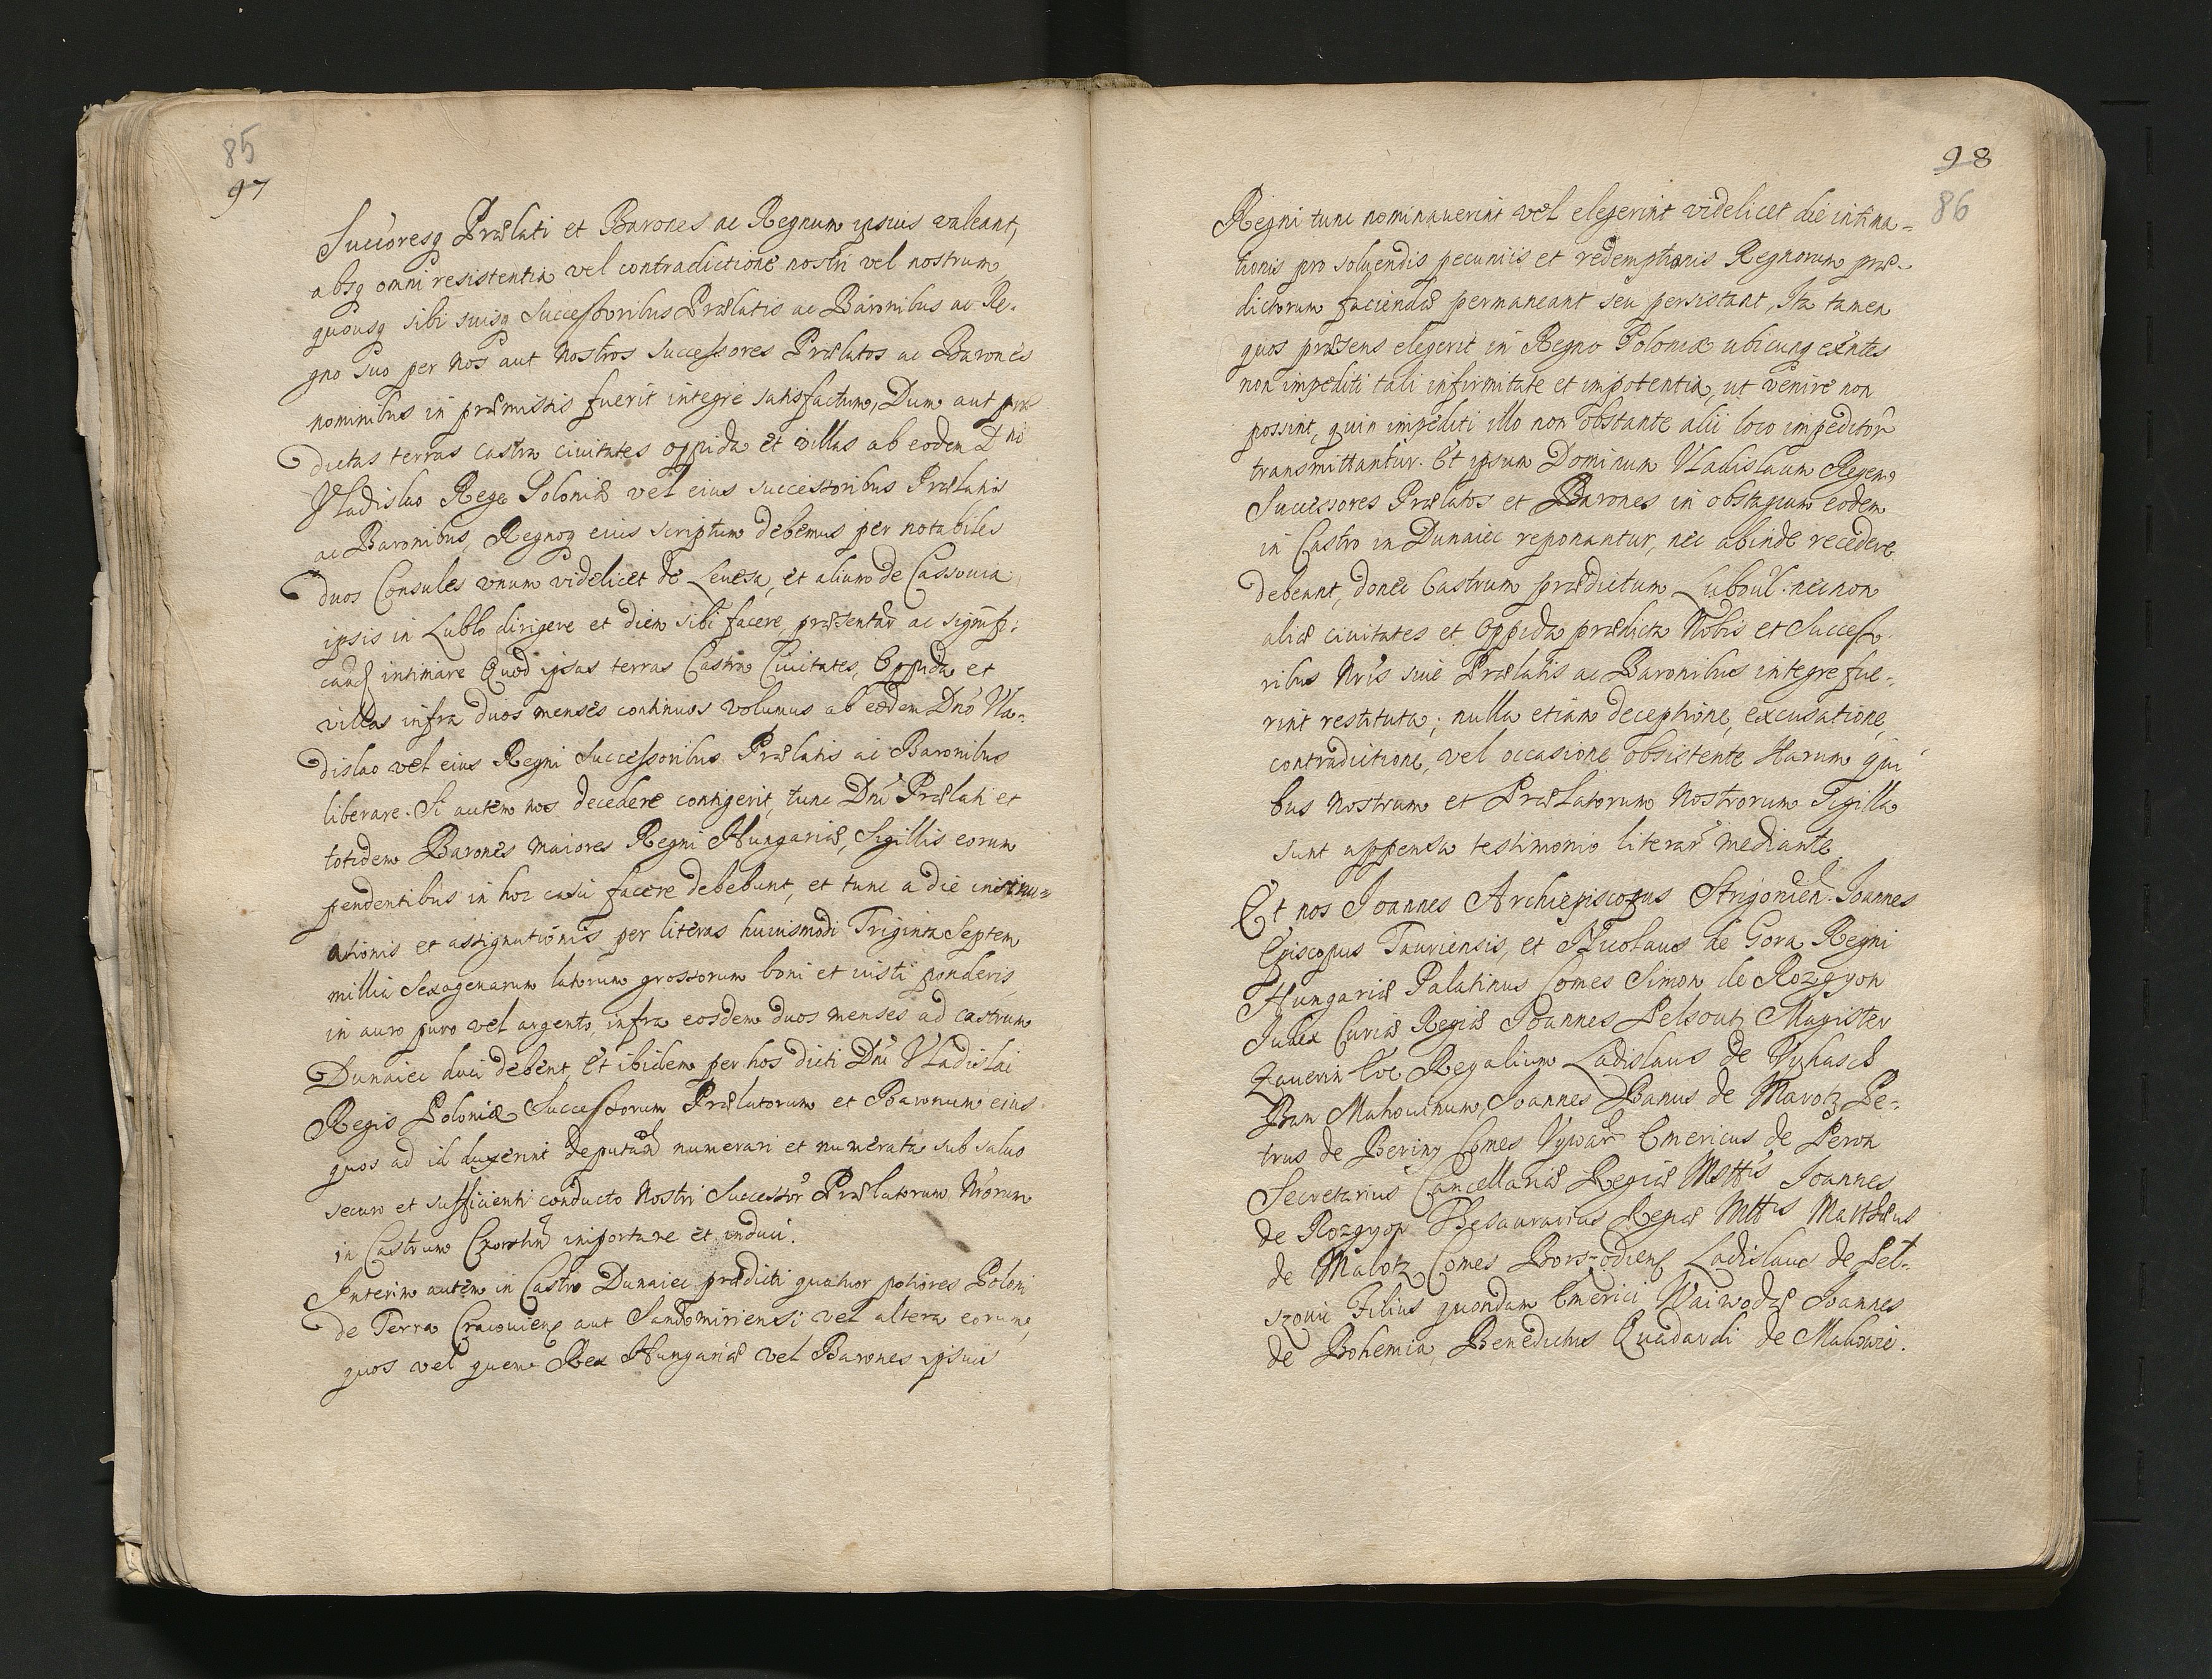 85
97
Succoresq Prælati et Barones ac Regnum ipsius valeant,
absq omni resistentia vel contradictione nostri vel nostrum
quousq sibi suisq Successoribus Prælatis ac Baronibus ac Re-
gno suo per nos aut nostros successores Prælatos ac Barones
nominibus in præmissis fuerit integre satisfactum, Dum aut præ
dictas terras castra civitates oppida et villas ab eodem Dno
Vladislao Rege Poloniæ vel eius successoribus Prælatis
ac Baronibus, Regnoq eius scriptum debemus per notabiles
duos Consules vnum videlicet de Leuesa, et alium de Cassouia,
ipsis in Lublo dirigere et diem sibi facere, præsentar ac signifi:
candq intimare Quod ipsas terras Castra Ciuitates, Oppida et
villas infra duos menses continuos volumus ab eodem Dno Vla-
dislao vel eius Regni Successoribus Prælatis ac Baronibus
liberare. Si autem nos decedere contigerit, tunc Dni Prælati et
totidem Barones maiores Regni Hungariæ, Sigillis eorum
pendentibus in hoc casu facere debebunt, et tunc a die insinu-
ationis et assignationis per literas huiusmodi Triginta Septem
millia Sexagenarum latorum grossorum boni et iusti ponderis,
in auro puro vel argento, infra eosdem duos menses ad castrum
Dunaiec duci debent, Et ibidem per hos dicti Dni Vladislai
Regis Poloniæ Successorum Prælatorum et Baronum eius
quos ad id duxerint deputand numerari et numerata sub saluo
securo et sufficienti conducto nostri Successor Prælatorum Nrorum
in Castrum Czorstin importare et induci.
Interim autem in Castro Dunaiec prædicti quatuor potiores Poloni
de Terra Cracouiens aut Sandomiriensi vel altera eorum,
quos vel quem Rex Hungariæ vel Barones ipsius
98
86
Regni tunc nominauerint vel elegerint videlicet die intima-
tionis pro soluendis pecuniis et redemptionis Regnorum præ-
dictorum faciendæ permaneant seu persistant, Ita tamen
quos præsens elegerit in Regno Poloniæ ubicunq exntes
non impediti tali infirmitate et impotentia, ut venire non
possint, quin impediti illo non obstante alii loco impeditor
transmittantur. Et ipsum Dominum Vladislaum Regem
Successores Prælatos et Barones in obstagium eodem
in Castro in Dunaiec reponantur, nec abinde recedere
debeant, donec Castrum prædictum Luboul. necnon
aliæ ciuitates et Oppida prædicta Nobis et Successo-
ribus Nris siue Prælatis ac Baronibus integre fue-
rint restituta; nulla etiam deceptione, excusatione,
contradictione, vel occasione obsistente Harum qui
bus nostrum et Prælatorum nostrorum Sigilla
sunt appensa testimonio literar mediante
Et nos Ioannes Archiepiscopus Strigonien. Ioannes
Episcopus Iauriensis, et Nicolaus de Gora Regni
Hungariæ Palatinus Comes Simon de Rozgyon
Iudex Curiæ Regiæ Ioannes Pelsouti Magister
Regalium Ladislaus de Vyhasch
Ban Mahouinum, Ioannes Banus de Marotz Pe-
trus de Bering Comes Vywar Emericus de Peren
Secretarius Cancellariæ Regiæ Mttis Ioannes
de Rozgyon Thesaurarius Regiæ Mttis Matthæus
de Malotz Comes Borszodiens Ladislaus de Pel-
szouu Filius quondam Emerici Waiwodæ Ioannes
de Bohemia, Benedictus Quadardi de Mahari.